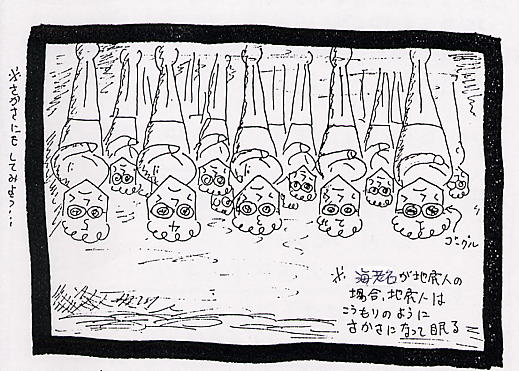 ※さかさにもしてみよう…
ゴーグル
※ 海老名が地底人の
場合、地底人は
こうもりのように
さかさになって眠る